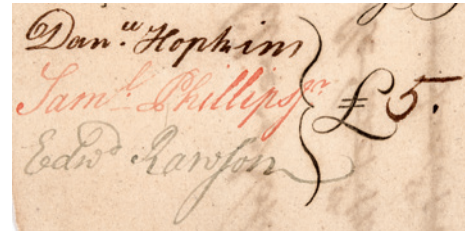 Dan.ll Hopkins
Saml. Phillips jr
Edwd Rawson
£5.